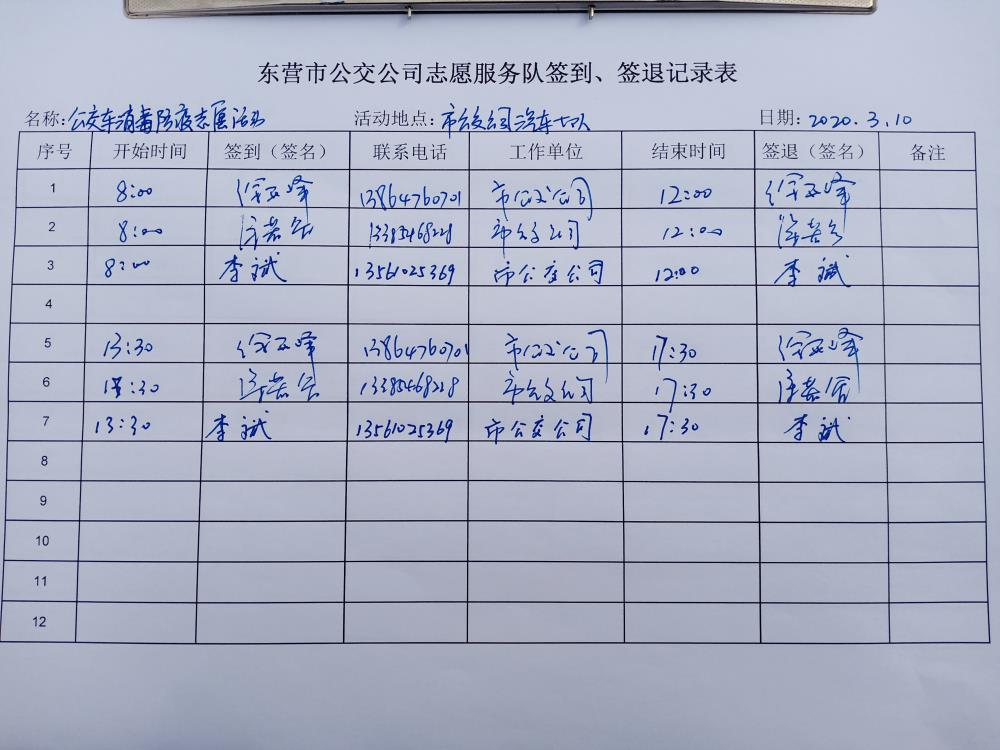 东营市公交公司志愿服务队签到、签退记录表
名称:公交车消毒防疫志愿活动 活动地点:市公交公司汽车七队 日期:2020.3.10
序号 开始时间 签到（签名） 联系电话 工作单位 结束时间 签退（签名） 备注
1 8:00 13864760701 市公交公司 12:00
2 8:00 13385468228 市公交公司 12:00
3 8:00 李斌 13561025369 市公交公司 12:00 李斌
4
5 13:30 13864760701 市公交公司 17:30
6 13:30 13385468228 市公交公司 17:30
7 13:30 李斌 13561025369 市公交公司 17:30 李斌
8
9
10
11
12